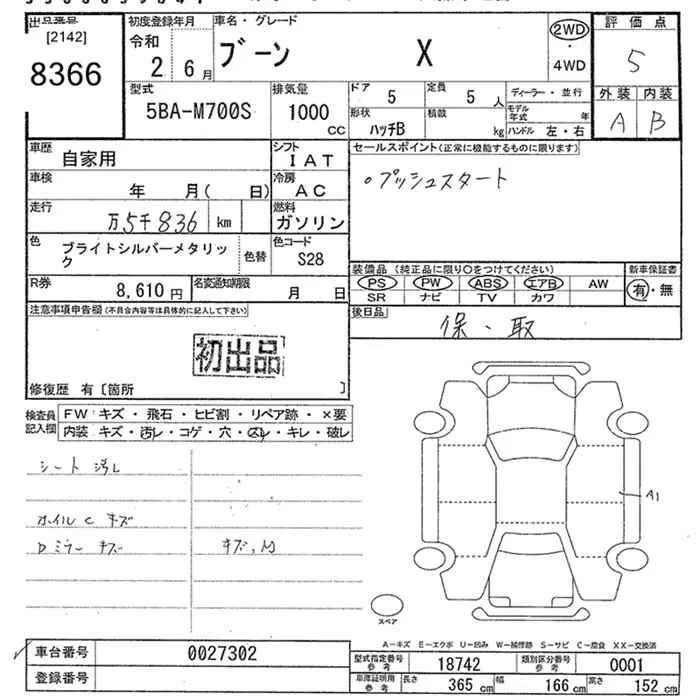 出品番号
[2142]
8366
初度登録年月
令和
2 6月
車名・グレード
ブーン X
2WD
・
4WD
評価点
5
外装 内装
A B
型式
5BA-M700S
排気量
1000
CC
ドア
5
定員
5人
ディーラー・並行
形状
ハッチB
積載
kg
モデル
年式
年
ハンドル 左・右
車歴
自家用
シフト
IAT
セールスポイント(正常に機能するものに限ります)
・プッシュスタート
車検
年 月( 日)
冷房
AC
走行
万5千836 km
燃料
ガソリン
色
ブライトシルバーメタリック
色替
色コード
S28
装備品(純正品に限り〇をつけてください)
PS PW ABS エアB AW
SR ナビ TV カワ
新車保証書
有・無
R券
8,610円
名変通知期限
月 日
後日品
保・取
注意事項申告欄(不具合内容等は具体的に記入して下さい)
初出品
修復歴 有〔箇所 〕
検査員
記入欄
FW キズ・飛石・ヒビ割・リペア跡・×要
内装 キズ・汚レ・コゲ・穴・スレ・キレ・破レ
シート 汚レ
ホイルC キズ
Dミラー キズ
キズ,M
A1
スペア
A-キズ E-エクボ U-凹み W-補修跡 S-サビ C-腐食 XX-交換済
車台番号
0027302
登録番号
型式指定番号
参考
18742
類別区分番号
参考
0001
車庫証明用
参考
長さ
365cm
幅
166cm
高さ
152cm